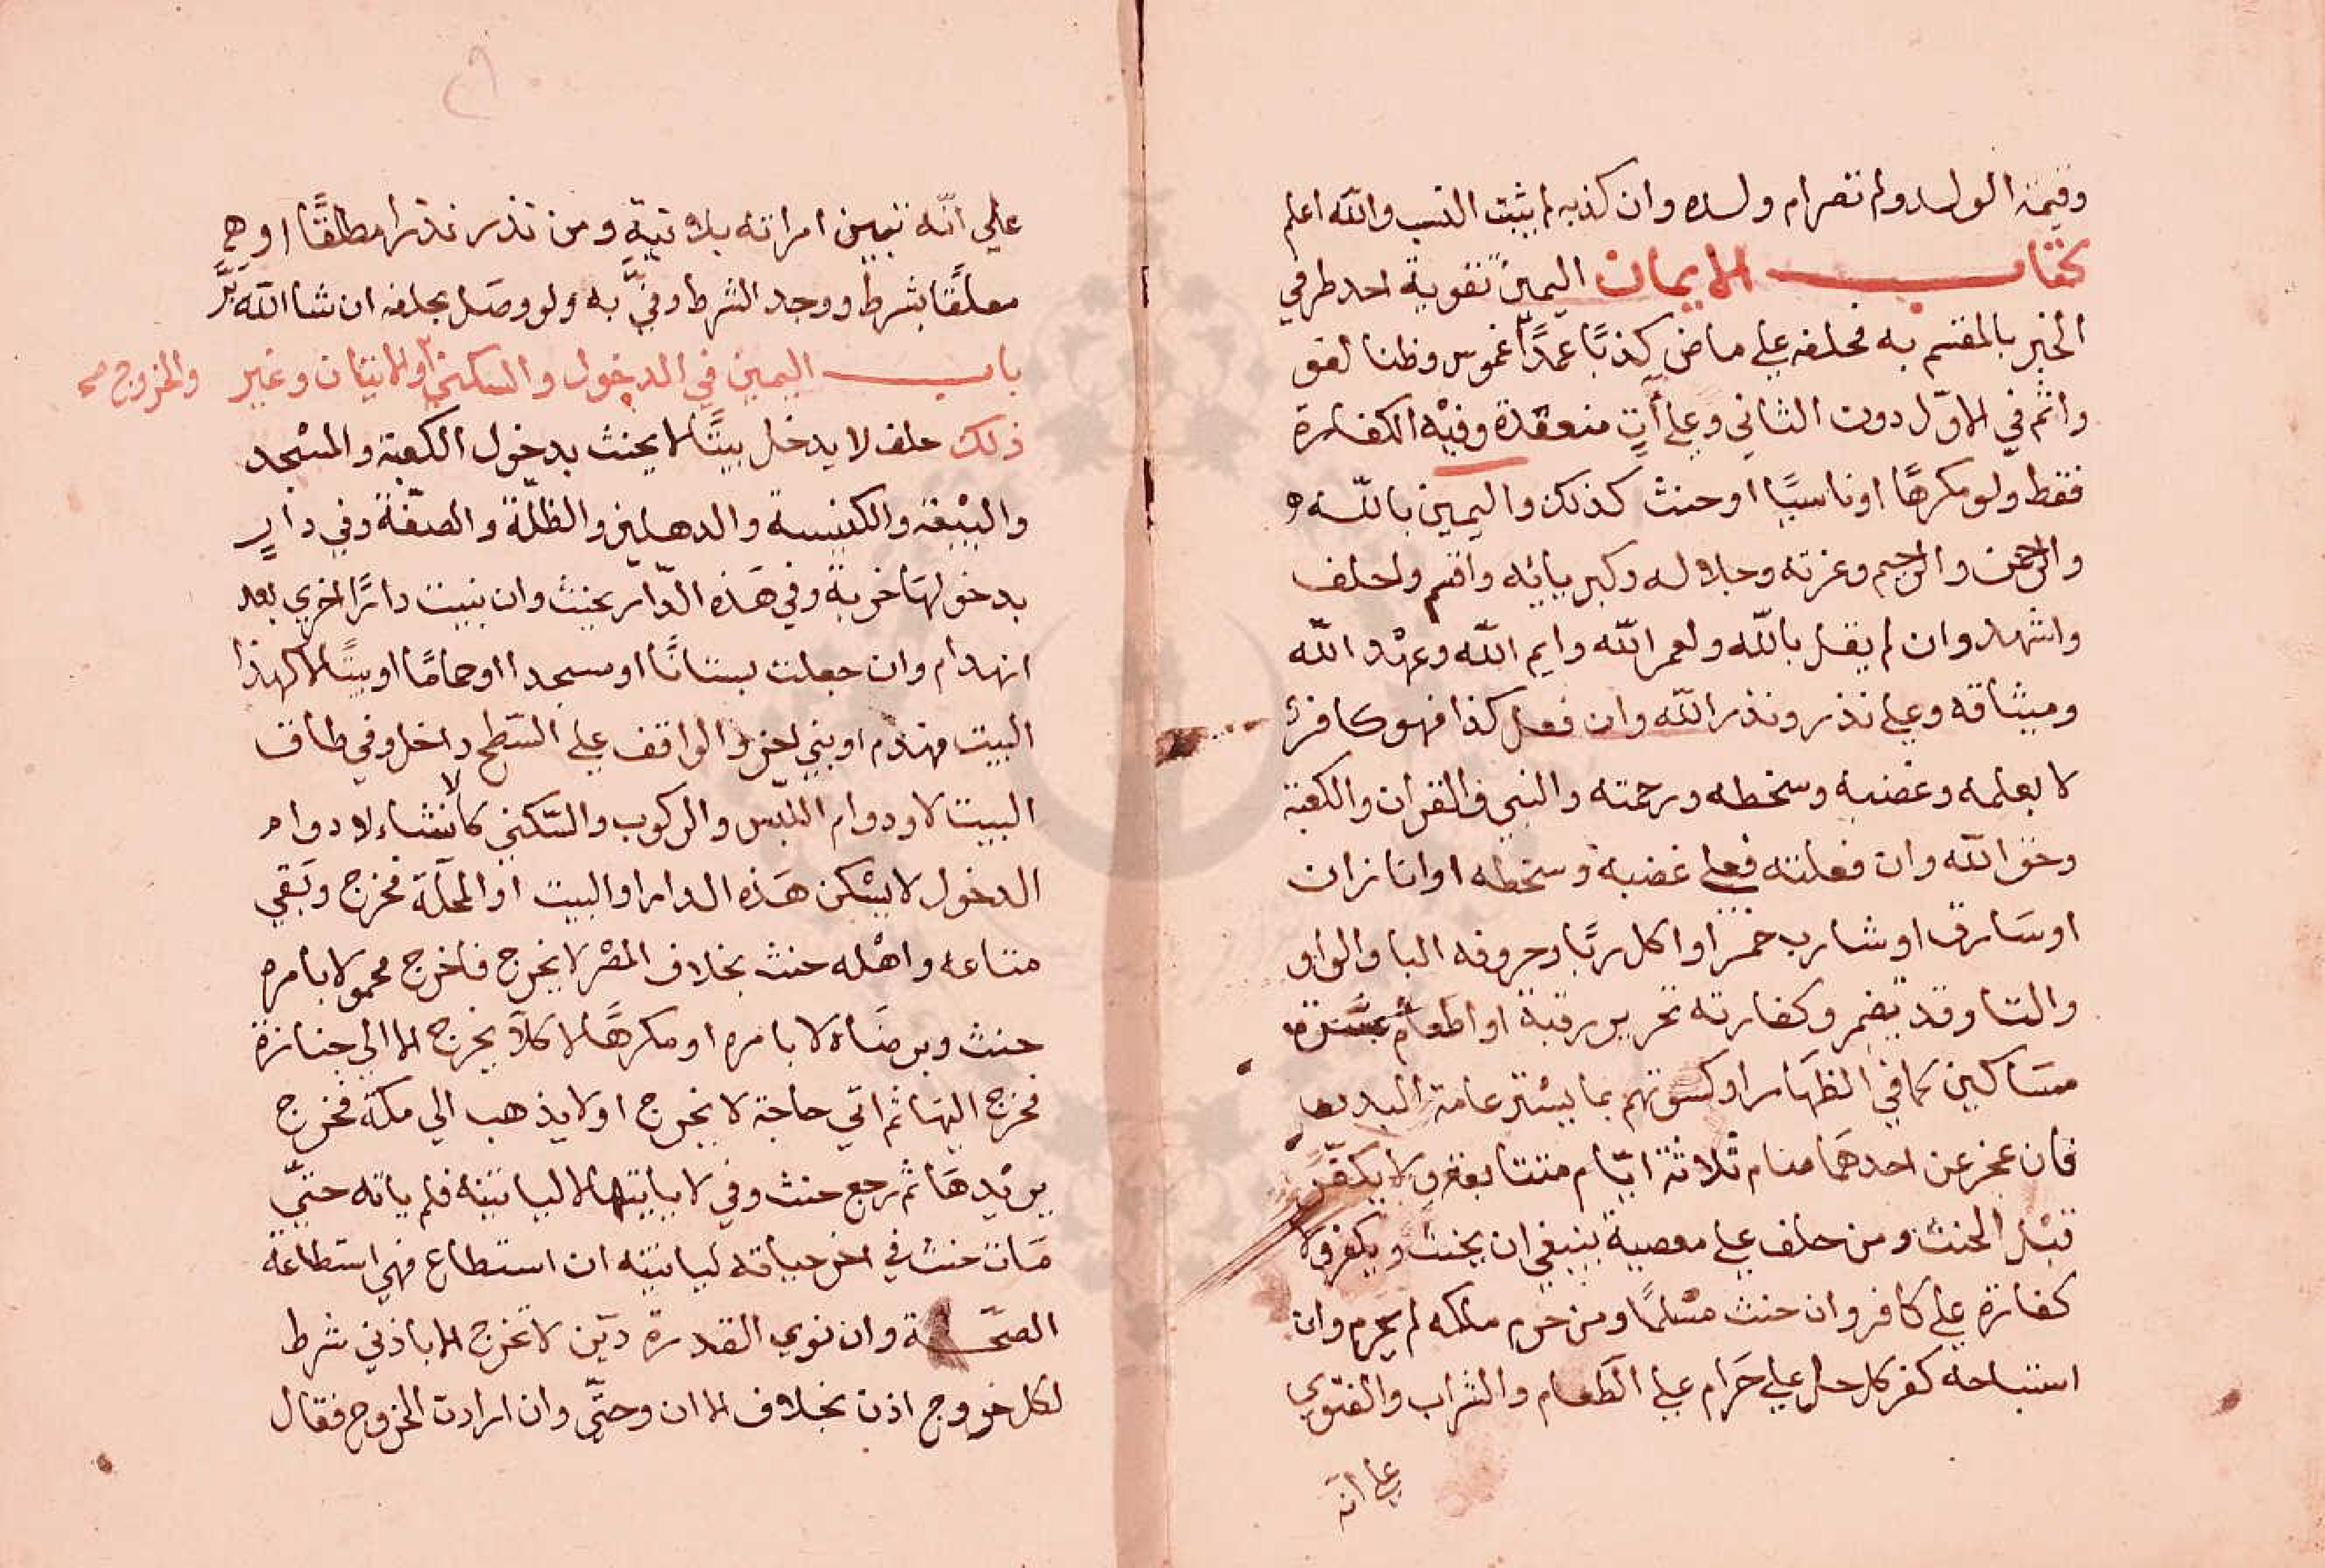 وقيمة الولد ولم تصر ام ولده وان كذبه لم يثبت النسب والله اعلم
كتاب الايمان اليمين تقوية احد طرفي
الخبر بالمقسم به فحلفه علي ماض كذبًا عمدًا غموس وظنا لغو
واثم في الاوّل دون الثاني وعلي اٰتٍ منعقدة وفيْه الكفارة
فقط ولو مكرهًا او ناسيًا او حنث كذلك واليمين بالله
والرحمن والرحيم وعزته وجلاله وكبريائه واقسم واحلف
واشهد وان لم يقل بالله ولعمر الله وايم الله وعهْد الله
وميثاقه وعلي نذر ونذر الله وان فعل كذا فهو كافر
لا بعلمه وغضبه وسخطه ورحمته والنبي والقران والكعبة
وحق الله وان فعلته فعلي غضبه وسخطه او انا زان
او سَارق او شارب خمر او اكل ربًا وحروفه البا والواو
والتا وقد تضمر وكفارته تحرير رقبة او اطعام عشرة
مسَاكين كما في الظهَار او كسوتهم بما يسْتر عامة البدن
فان عجز عن احدهمَا صام ثلاثة ايّام متتابعة ولا يكفّر
قبْل الحنث ومن حلف علي معصية ينبغي ان يحنث ويكفر ولا
كفارة علي كافر وان حنث مسْلمًا ومن حرم ملكه لم يحرم وان
استباحه كفر كل حل علي حَرام علي الطعام والشراب والفتوي
علي انه
علي انّه تبين امراته بلا نية ومن نذر نذرا مطلقًا او
معلقًا بشرط ووجد الشرط وفيّ به ولو وصَل بحلفه ان شا الله بَرَّ
باب اليمين في الدخول والسكنيٰ والاتيان وغير والخروج صح
ذلك حلف لا يدخل بيتًا لا يحنث بدخول الكعبة والمسْجد
والبيْعة والكنيسة والدهليز والظلّة والصفّة وفي دارٍ
بدخولهَا خربة وفي هَذه الدّار يحنث وان بنيت دارًا اخري بعد
انهدام وان جعلت بستانًا او مسجدا او حمامًا او بيتًا لا كهذا
البيت فهدم او بني اخر والواقف علي السّطح داخل وفي طاق
البيت لا ودوام اللبس والركوب والسّكني كالانشاء لا دوام
الدخول لا يسْكن هَذه الدار او البيت او المحلّة فخرج وبَقي
متاعه واهْله حنث بخلاف المصْر لا يخرج فاخرج محمولا بامره
حنث وبرضَاه لا بامره او مكرهًا لا كلا يخرج الا الي جنازة
فخرج اليهَا ثم اتي حاجة لا يخرج او لا يذهب الي مكة فخرج
يريْدهَا ثم رجع حنث وفي لا ياتيها لا لياتينه فلم ياته حتيّ
مَات حنث في اخر حياته لياتينه ان استطاع فهي استطاعة
الصحّة وان نوي القدرة ديّن لا تخرج الا باذني شرط
لكل خروج اذن بخلاف الا ان وحتّي وان ارادت الخروج فقال